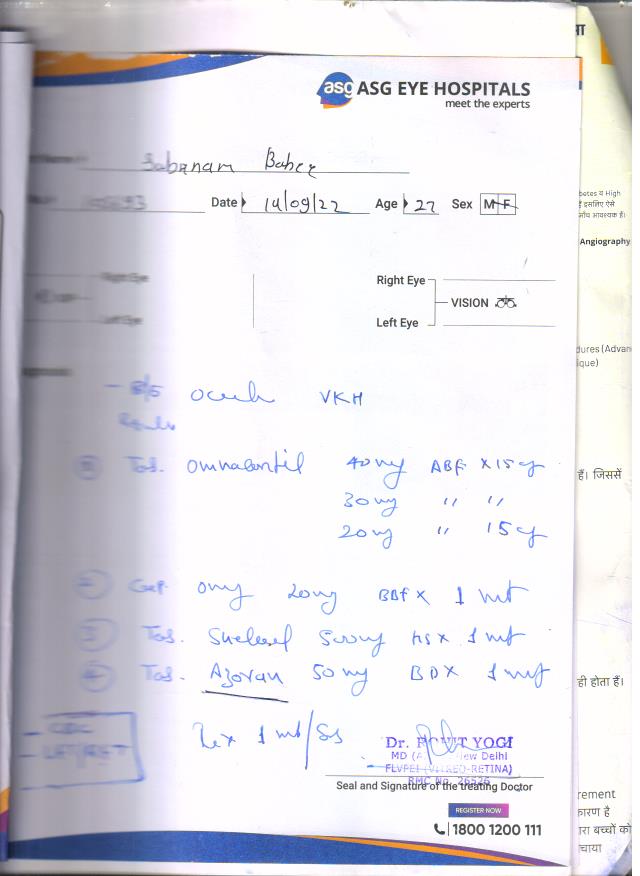 asg ASG EYE HOSPITALS
meet the experts
Sabanam
Date 14/09/22 Age 27 Sex M F
Right Eye
Right Eye
VISION
Left Eye
Left Eye
VKH
Tab. 40mg ABF X 15
30mg " "
20mg " 15
Cap. Omg 20mg BBF X 1 mt
3 Tab. 500mg HS X 1 mt
4 Tab. Azoran 50mg BD X 1 mt
CBC
LFT/RFT
1 mt/
Dr. ROHIT YOGI
MD New Delhi
FLVPEI (VITREO-RETINA)
RMC No. 26526
Seal and Signature of the treating Doctor
REGISTER NOW
1800 1200 111
मा
betes व High
है इसलिए ऐसे
जाँच आवश्यक है।
Angiography
dures (Advan
ique)
हैं। जिससें
ही होता हैं।
rement
कारण है
ारा बच्चों को
चाया